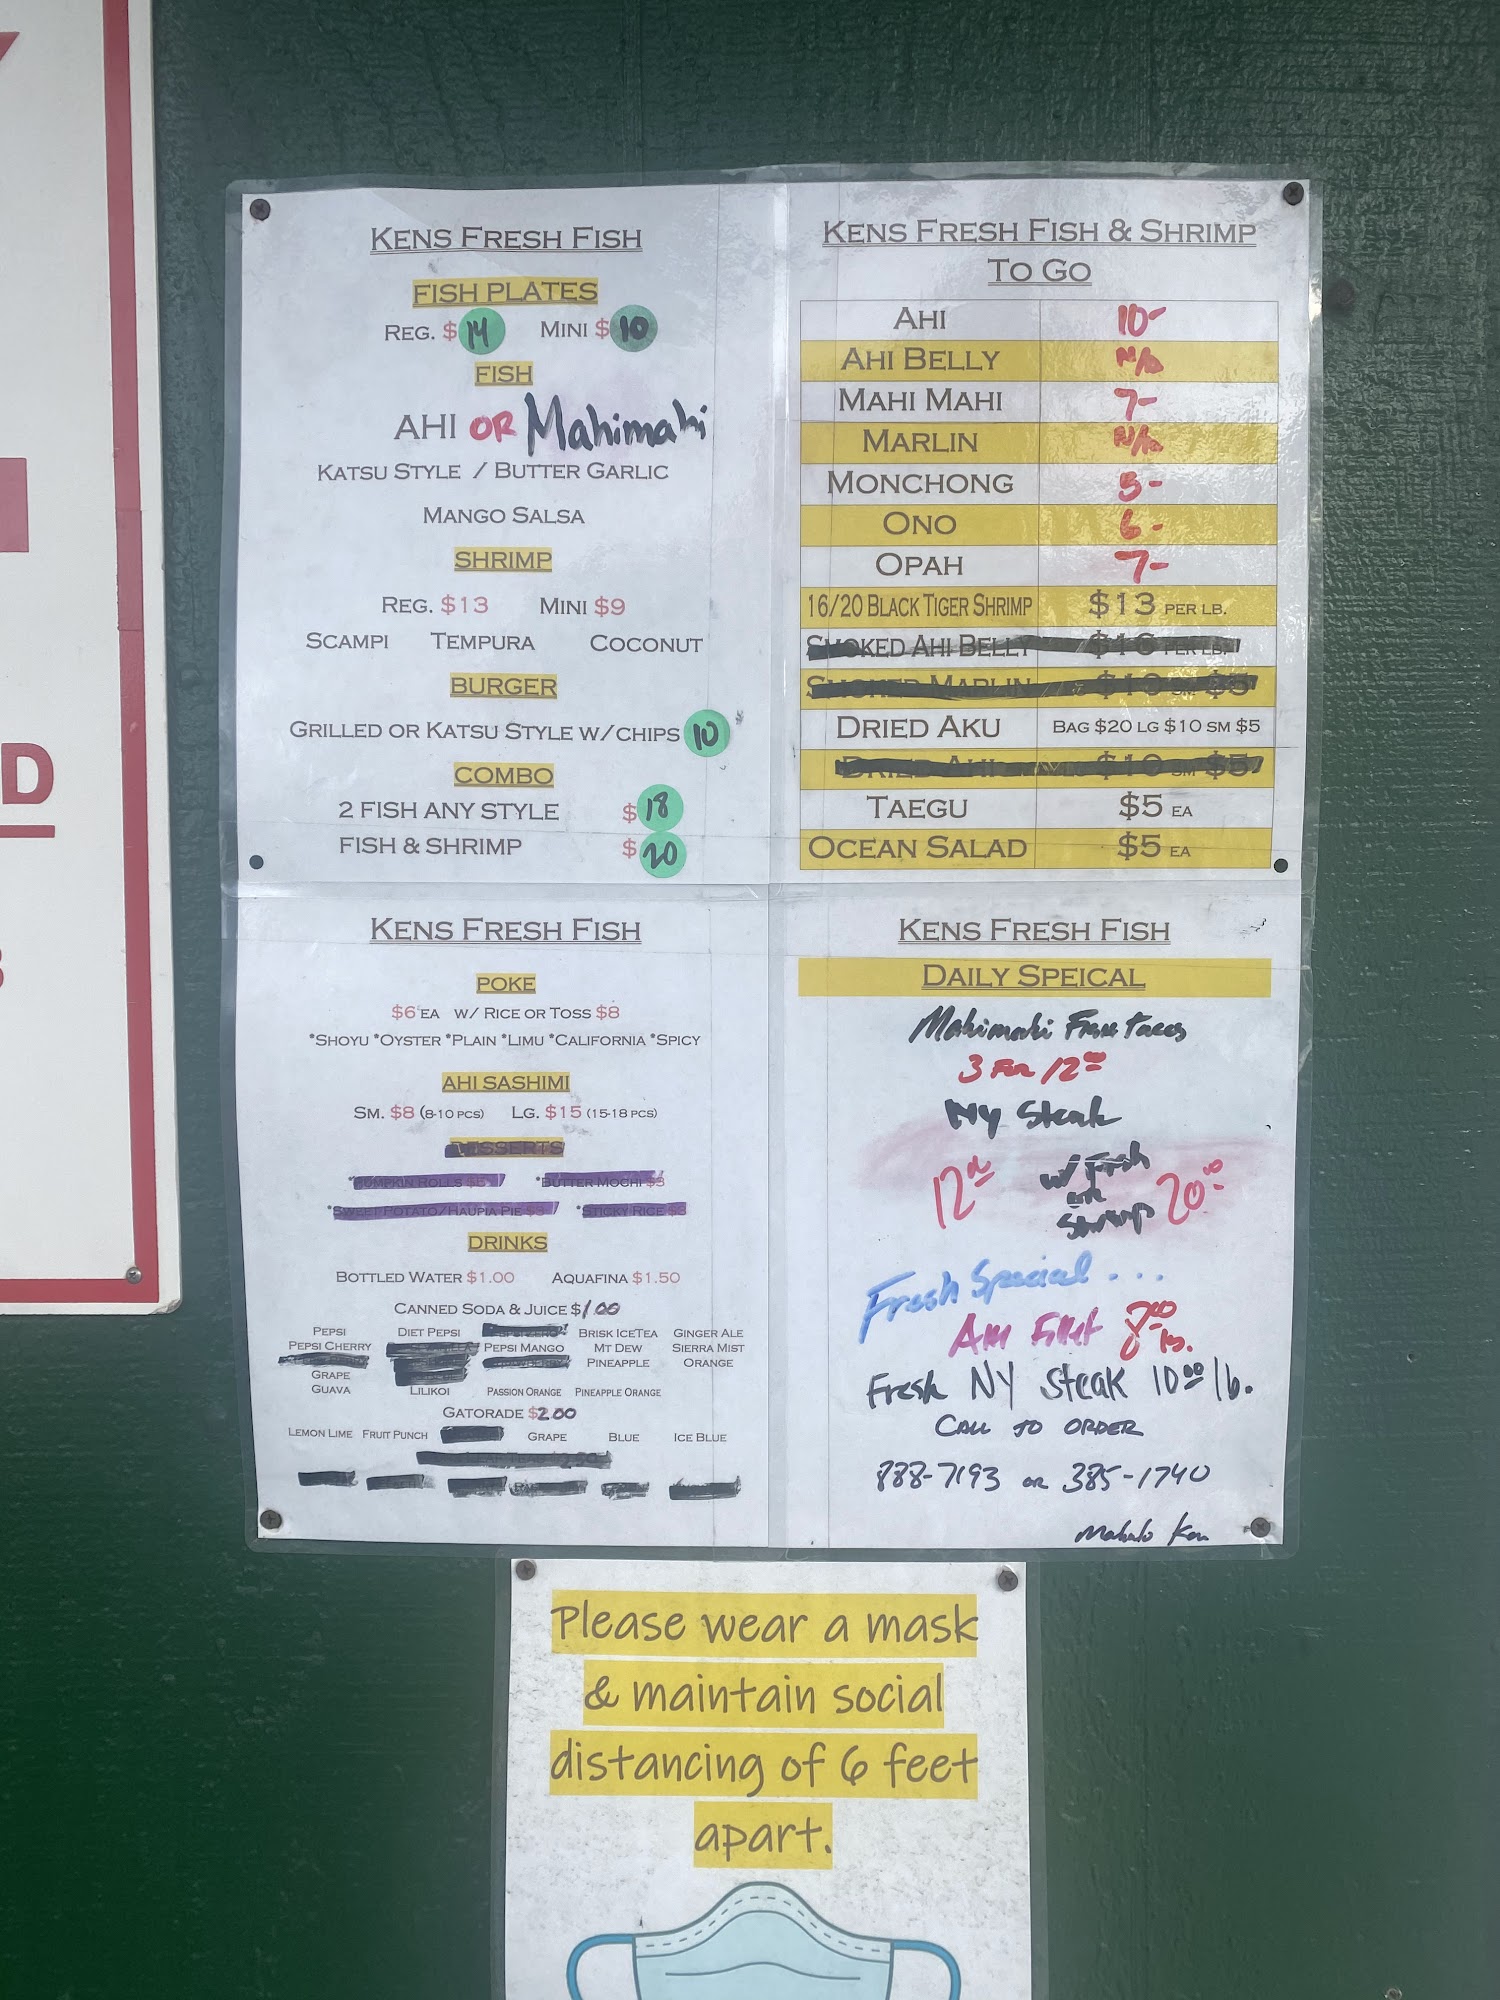 D
KENS FRESH FISH
FISH PLATES
REG. $14 MINI $10
FISH
AHI OR Mahimahi
KATSU STYLE / BUTTER GARLIC
MANGO SALSA
SHRIMP
REG. $13 MINI $9
SCAMPI TEMPURA COCONUT
BURGER
GRILLED OR KATSU STYLE W/CHIPS 10
COMBO
2 FISH ANY STYLE $18
FISH & SHRIMP $20
KENS FRESH FISH & SHRIMP
TO GO
AHI 10-
AHI BELLY N/A
MAHI MAHI 7-
MARLIN N/A
MONCHONG 5-
ONO 6-
OPAH 7-
16/20 BLACK TIGER SHRIMP $13 PER LB.
SMOKED AHI BELLY PER LB.
SMOKED MARLIN $10 SM $5
DRIED AKU BAG $20 LG $10 SM $5
DRIED AHI $10 SM $5
TAEGU $5 EA
OCEAN SALAD $5 EA
KENS FRESH FISH
POKE
$6 EA W/ RICE OR TOSS $8
*SHOYU *OYSTER *PLAIN *LIMU *CALIFORNIA *SPICY
AHI SASHIMI
SM. $8 (8-10 PCS) LG. $15 (15-18 PCS)
DESSERTS
*PUMPKIN ROLLS $5 *BUTTER MOCHI $3
*SWEET POTATO/HAUPIA PIE $3 *STICKY RICE $3
DRINKS
BOTTLED WATER $1.00 AQUAFINA $1.50
CANNED SODA & JUICE $1.00
PEPSI DIET PEPSI BRISK ICETEA GINGER ALE
PEPSI CHERRY PEPSI MANGO MT DEW SIERRA MIST
PINEAPPLE ORANGE
GRAPE
GUAVA LILIKOI PASSION ORANGE PINEAPPLE ORANGE
GATORADE $2.00
LEMON LIME FRUIT PUNCH GRAPE BLUE ICE BLUE
KENS FRESH FISH
DAILY SPEICAL
Mahimahi Tacos
3 For 12.00
NY Steak
12.00 w/ Fish or Shrimp 20.00
Fresh Special...
Fillet
Fresh NY Steak 10.00 lb.
CALL TO ORDER
888-7193 or 385-1740
Mahalo Ken
Please wear a mask
& maintain social
distancing of 6 feet
apart.